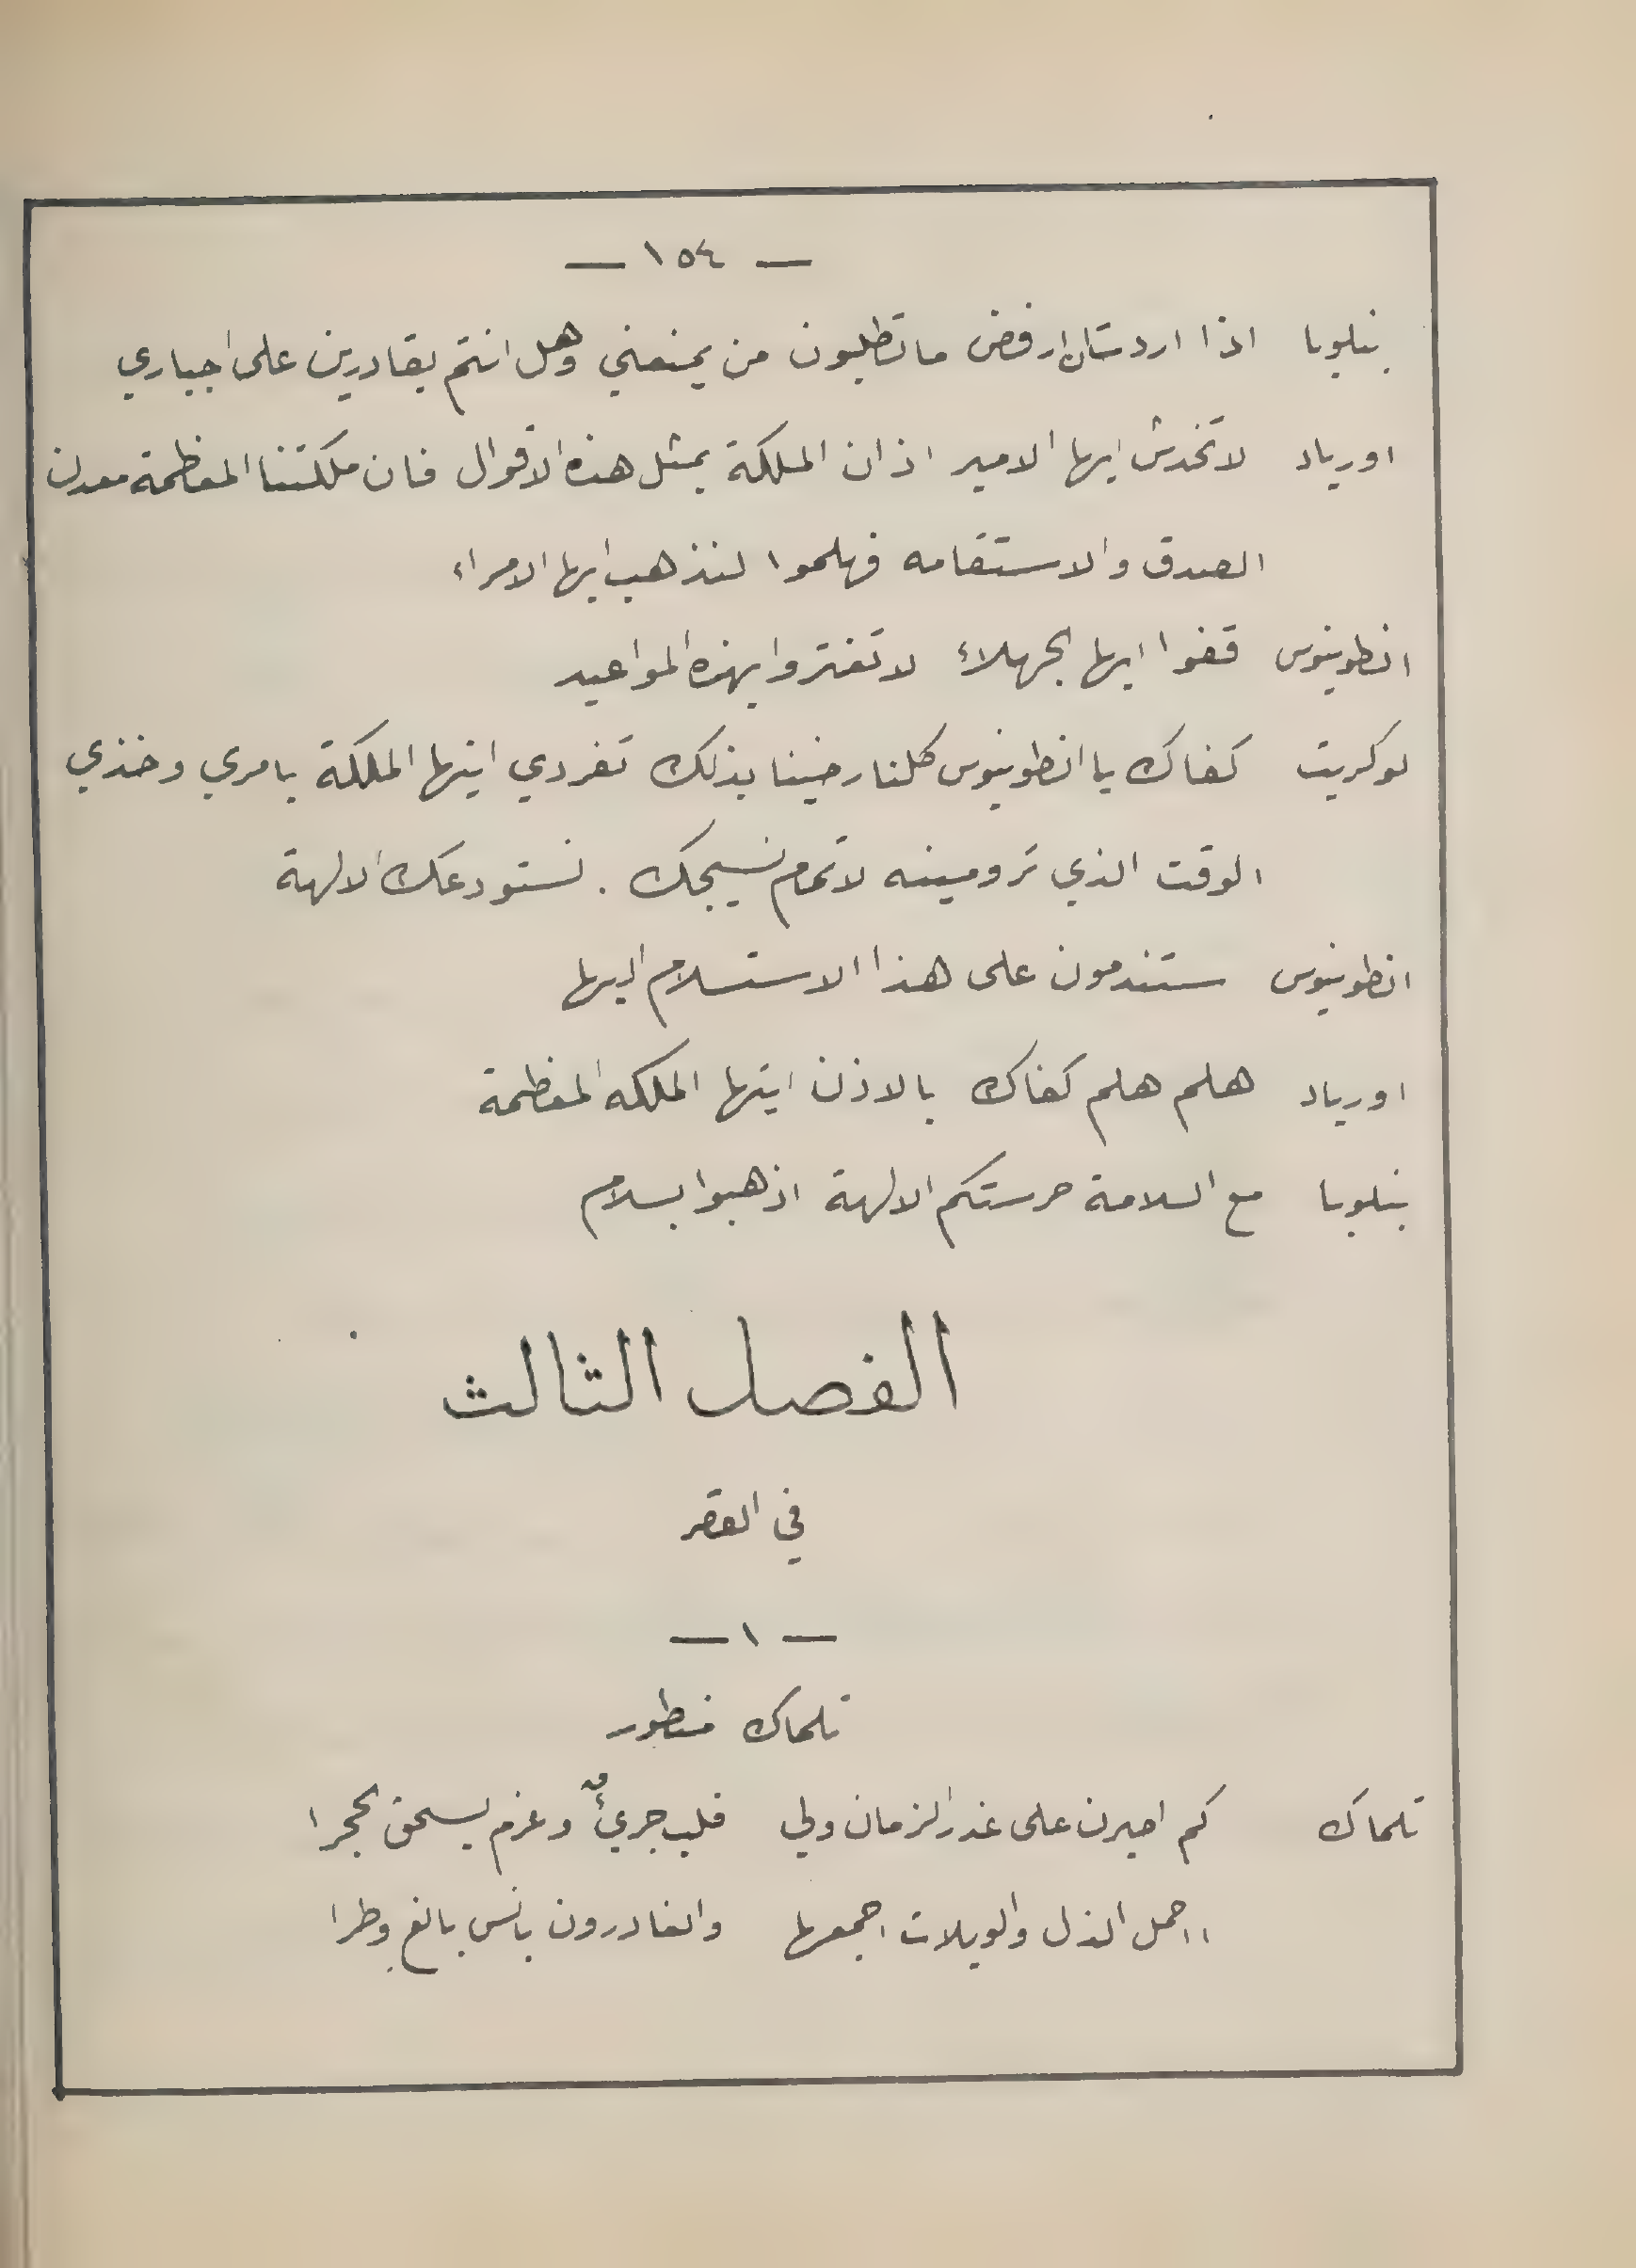 — ١٥٤ —
بنلوبا اذا اردت ان ارفض ما تطلبون من يمنعني وهل انتم بقادرين على اجباري
اورياد لا تخدش ايها الامير اذان الملكة بمثل هذه الاقوال فان ملكتنا المعظمة معدن
الصدق والاستقامه فهلموا لنذهب ايها الامراء
انطونيوس قفوا ايها الجهلاء لا تغتروا بهذه المواعيد
لوكريت كفاك يا انطونيوس كلنا رضينا بذلك تفردي ايتها الملكة يا مري وخذي
الوقت الذي ترومينه لاتمام نسيجك . نستودعك الالهة
انطونيوس ستندمون على هذا الاستسلام اليها
اورياد هلم هلم كفاك بالاذن ايتها الملكه المعظمة
بنلوبا مع السلامة حرستكم الالهة اذهبوا بسلام
الفصل الثالث
في القصر
— ١ —
تلماك منطور
تلماك كم اصبرن على غدر الزمان ولي قلب جريءٌ وعزم يسحق الحجرا
ااحمل الذل والويلات اجمعها والغادرون بانس بالغ وطرا